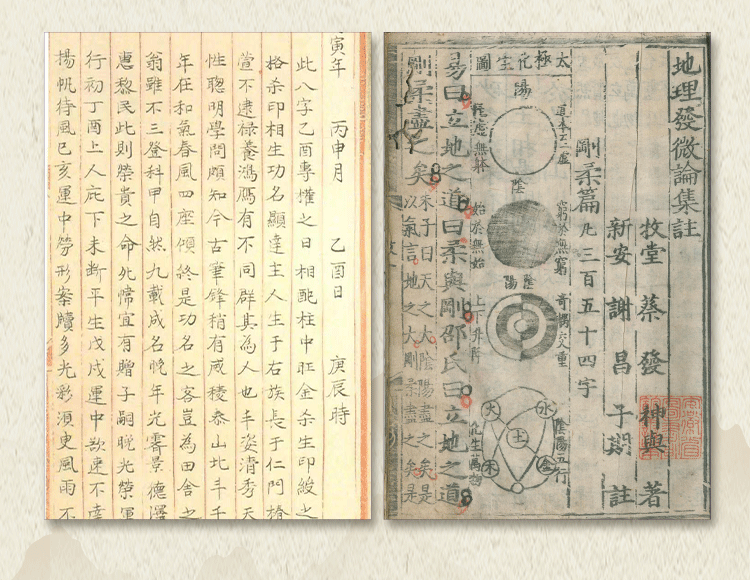 寅年 丙申月 乙酉日 庚辰時
此八字乙酉專權之日相配柱中旺金杀生印綬之
格杀印相生功名顯達主人生于右族長于仁門椿
萱不逮祿養鴻鴈有不同群其為人也丰姿清秀天
性聰明學問頗知今古筆鋒稍有威稜泰山北斗千
年在和氣春風四座傾終是功名之客豈為田舍之
翁雖不三登科甲自然九載成名晚年光霽景德澤
惠黎民此則榮貴之命宜有贈子嗣晚光榮
行初丁酉上人庇下未斷平生戊戌運中欲速不達
揚帆待風己亥運中勞形案牘多光彩須更風雨不
地理發微論集註
牧堂蔡發神與著
新安謝昌子期註
剛柔篇凡三百五十四字
太極化生圖
陽
陰
陰陽
上下升沉
始於無始
窮於無窮
陰陽五行
化生萬物
火
水
土
木
金
易曰立地之道曰柔與剛邵氏曰立地之道
剛柔盡之矣
朱子曰天之大陰陽盡之矣是
以氣言地之大剛柔盡之矣是